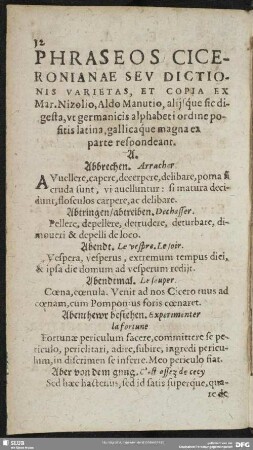 12
PHRASEOS CICE-
RONIANAE SEV DICTIO-
NIS VARIETAS, ET COPIA EX
Mar. Nizolio, Aldo Manutio, alijsque sic di-
gesta, vt germanicis alphabeti ordine po-
sitis latina, gallicaque magna ex
parte respondeant.
A.
Abbrechen. Arracher.
AVuellere, capere, decerpere, delibare, poma si
cruda sunt, vi auelluntur: si matura deci-
dunt, flosculos carpere, ac delibare.
Abtringen/abtreiben. Dechasser.
Pellere, depellere, detrudere, deturbare, di-
moueri & depelli de loco.
Abendt. Le vespre. Le soir.
Vespera, vesperus, extremum tempus diei,
& ipsa die domum ad vesperum redijt.
Abendtmal. Le souper.
Cœna, cœnula. Venit ad nos Cicero tuus ad
cœnam, cum Pomponius foris cœnaret.
Abenthewr bestehen. Experimenter
la fortune
Fortunæ periculum facere, committere se pe-
riculo, periclitari, adire, subire, ingredi pericu-
lum, in discrimen se inferre. Meo periculo fiat.
Aber von dem gnug. C'est assez de cecy
Sed hæc hactenus, sed id satis superque, qua-
re de
SLUB
DFG